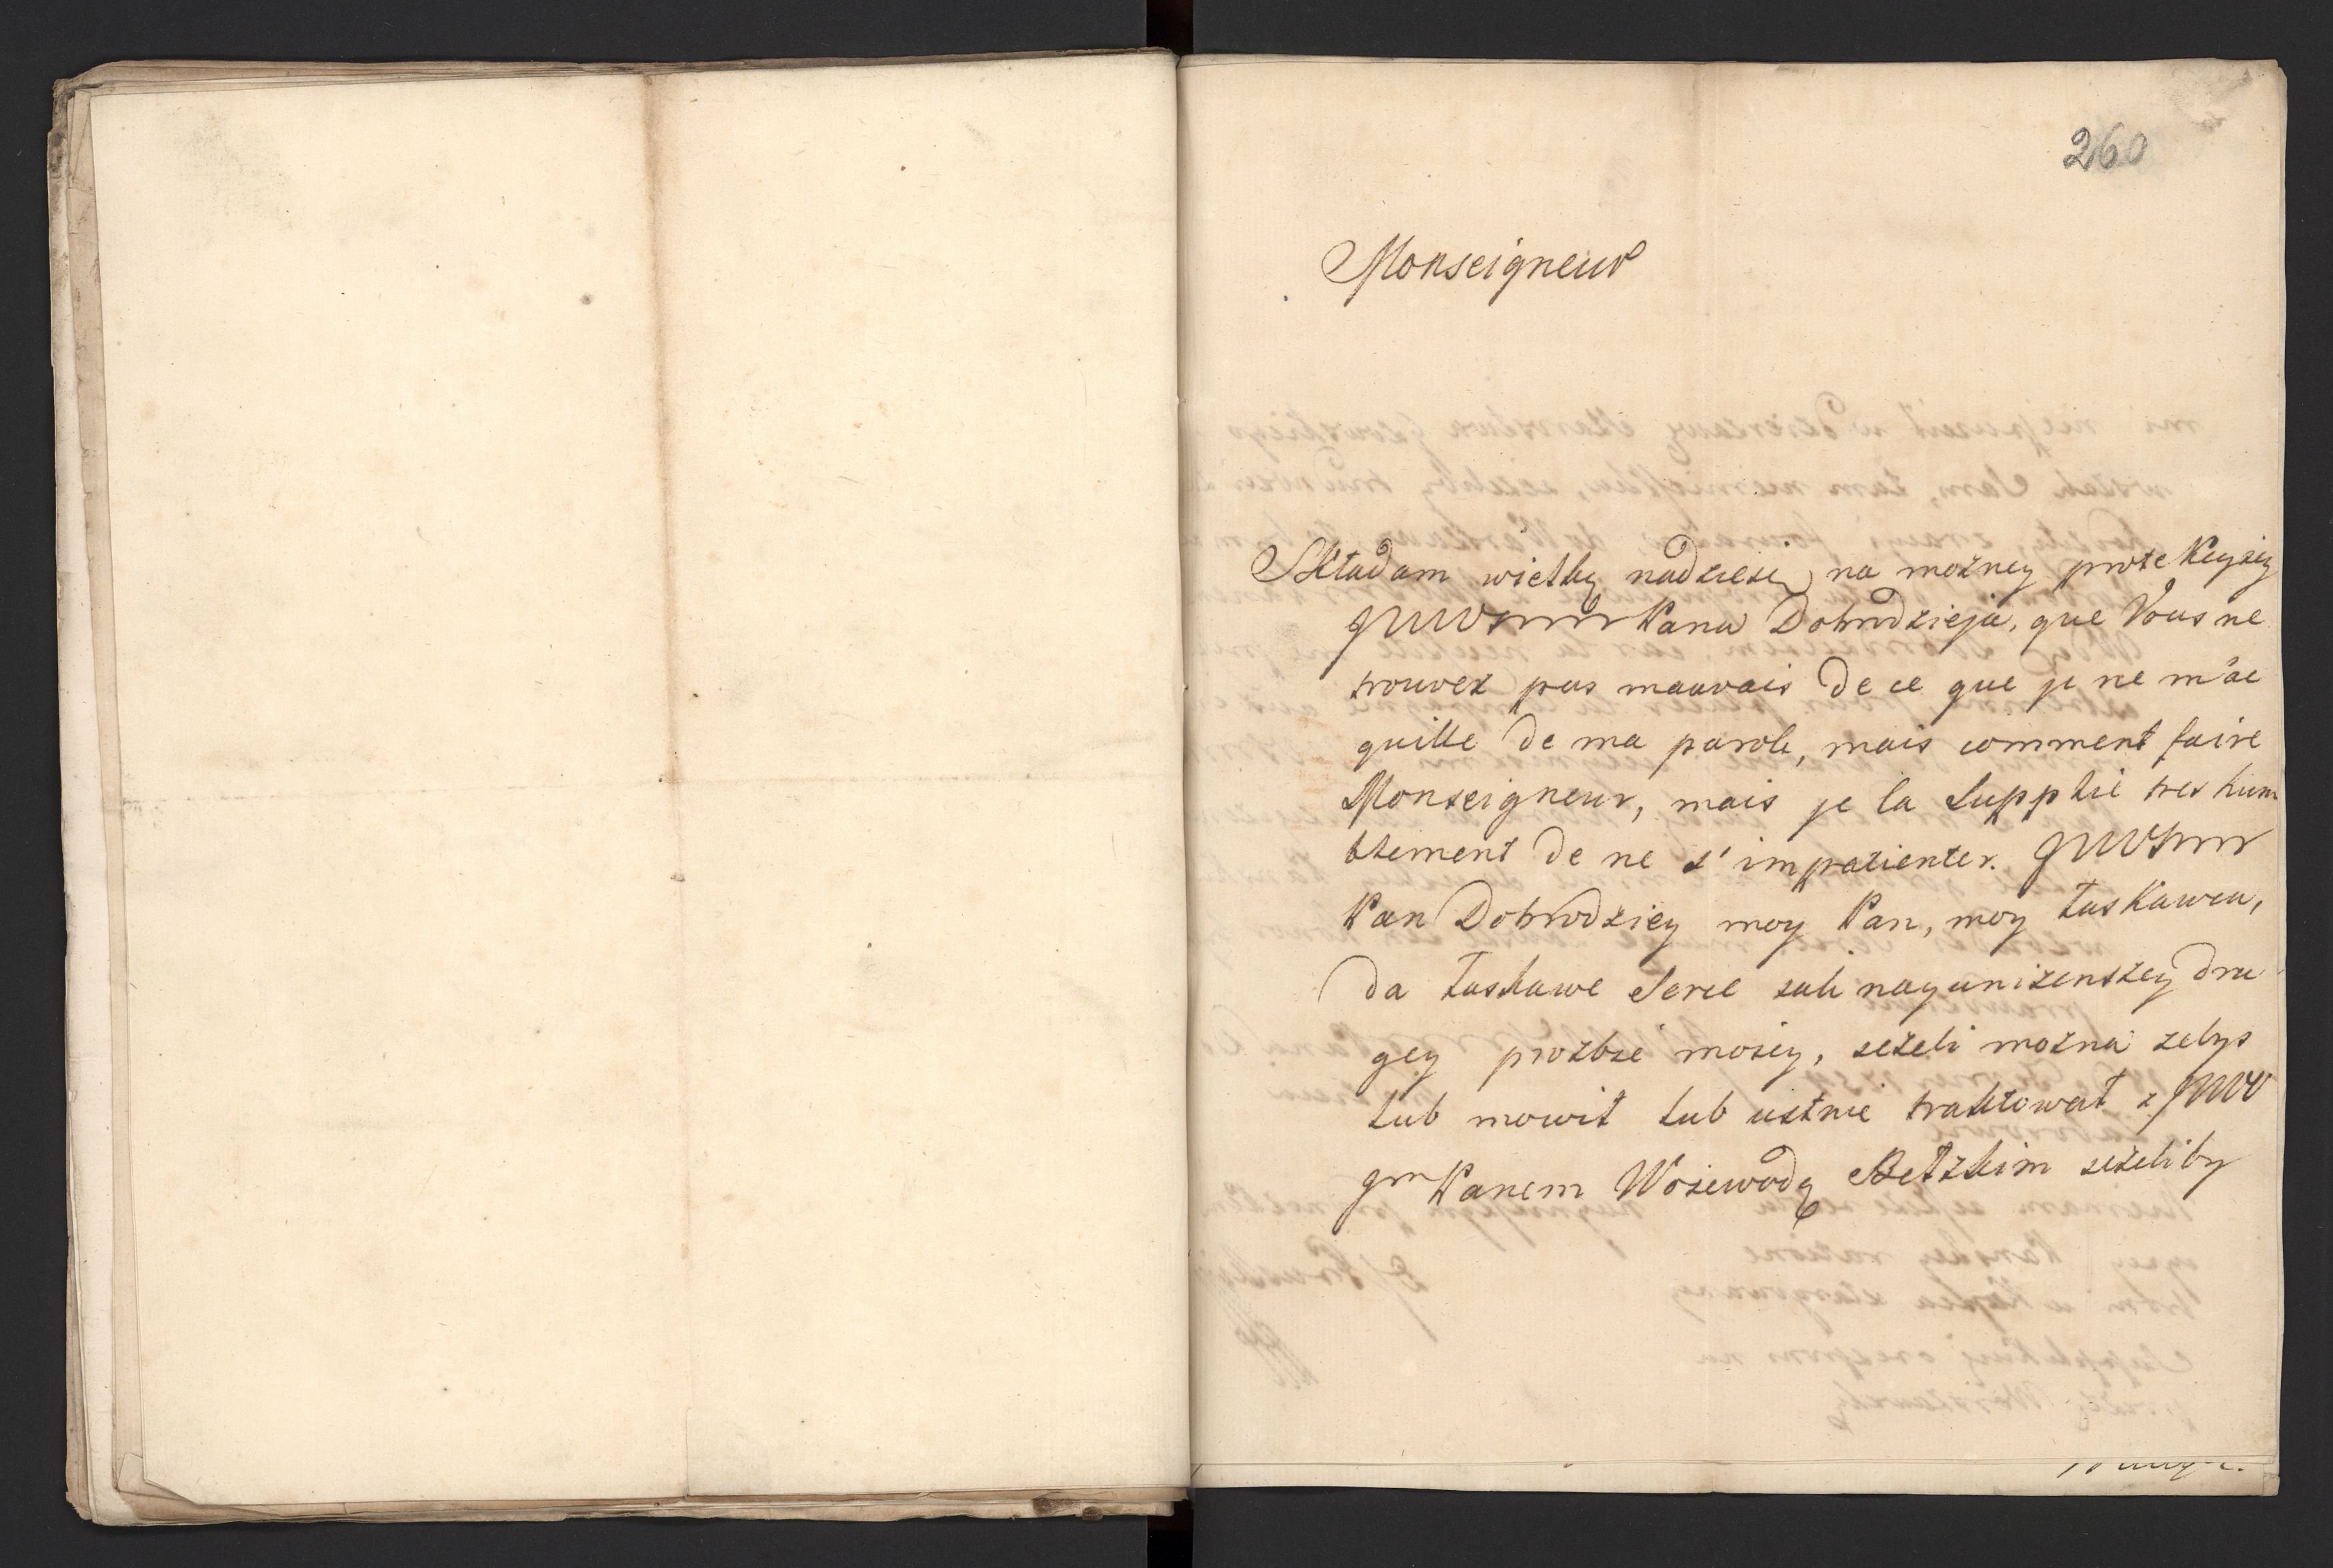 260
Monseigneur
Składam wielką nadzieię na możney protekcyiey
JWWMM Pana Dobrodzieja, que Vous ne
trouvez pas mauvais de ce que je ne m'ac
quitte de ma parole, mais comment faire
Monseigneur, mais je la supplie tres hum
blement de ne s'impatienter. JWWM
Pan Dobrodziey moy Pan, moy łaskawca,
da łaskawe serce tak nayunizenszey dru
giey prozbie moiey, jezeli mozna zebys
lub mowił lub ustnie traktował z JWW
Jm Panem Woiewodą Bełzkim jezeliby